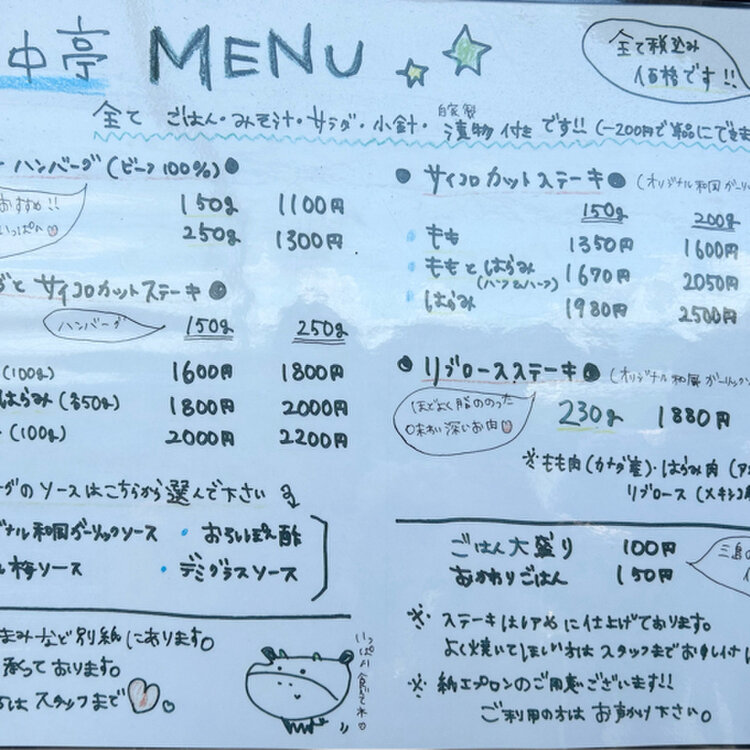 中亭 MENU
全て税込み
価格です!!
全て ごはん・みそ汁・サラダ・小針・自家製漬物付きです!! (-200円で単品にできま
ハンバーグ(ビーフ100%)●
おすすめ!!
いっぱい♡
150g 1100円
250g 1300円
●サイコロカットステーキ●(オリジナル和風ガーリッ
150g 200g
もも 1350円 1600円
ももとはらみ(ハーフ&ハーフ) 1670円 2050円
はらみ 1980円 2500円
グと サイコロカットステーキ●
ハンバーグ 150g 250g
(100g) 1600円 1800円
はらみ(各50g) 1800円 2000円
(100g) 2000円 2200円
●リブロースステーキ●(オリジナル和風ガーリック
ほどよく脂ののった
味わい深いお肉♡
230g 1880円
※もも肉(カナダ産)・はらみ肉(ア
リブロース(メキシコ
ーグのソースはこちらから選んで下さい
ジナル和風ガーリックソース ・おろしぽん酢
梅ソース ・デミグラスソース
ごはん大盛り 100円
おかわりごはん 150円
三島の
まみなど別紙にあります。
承っております。
はスタッフまで♡。
いっぱい食べて
※ステーキはレアめに仕上げております。
よく焼いてほしい方はスタッフまでお申し付け
※紙エプロンのご用意ございます!!
ご利用の方はお声かけ下さい。